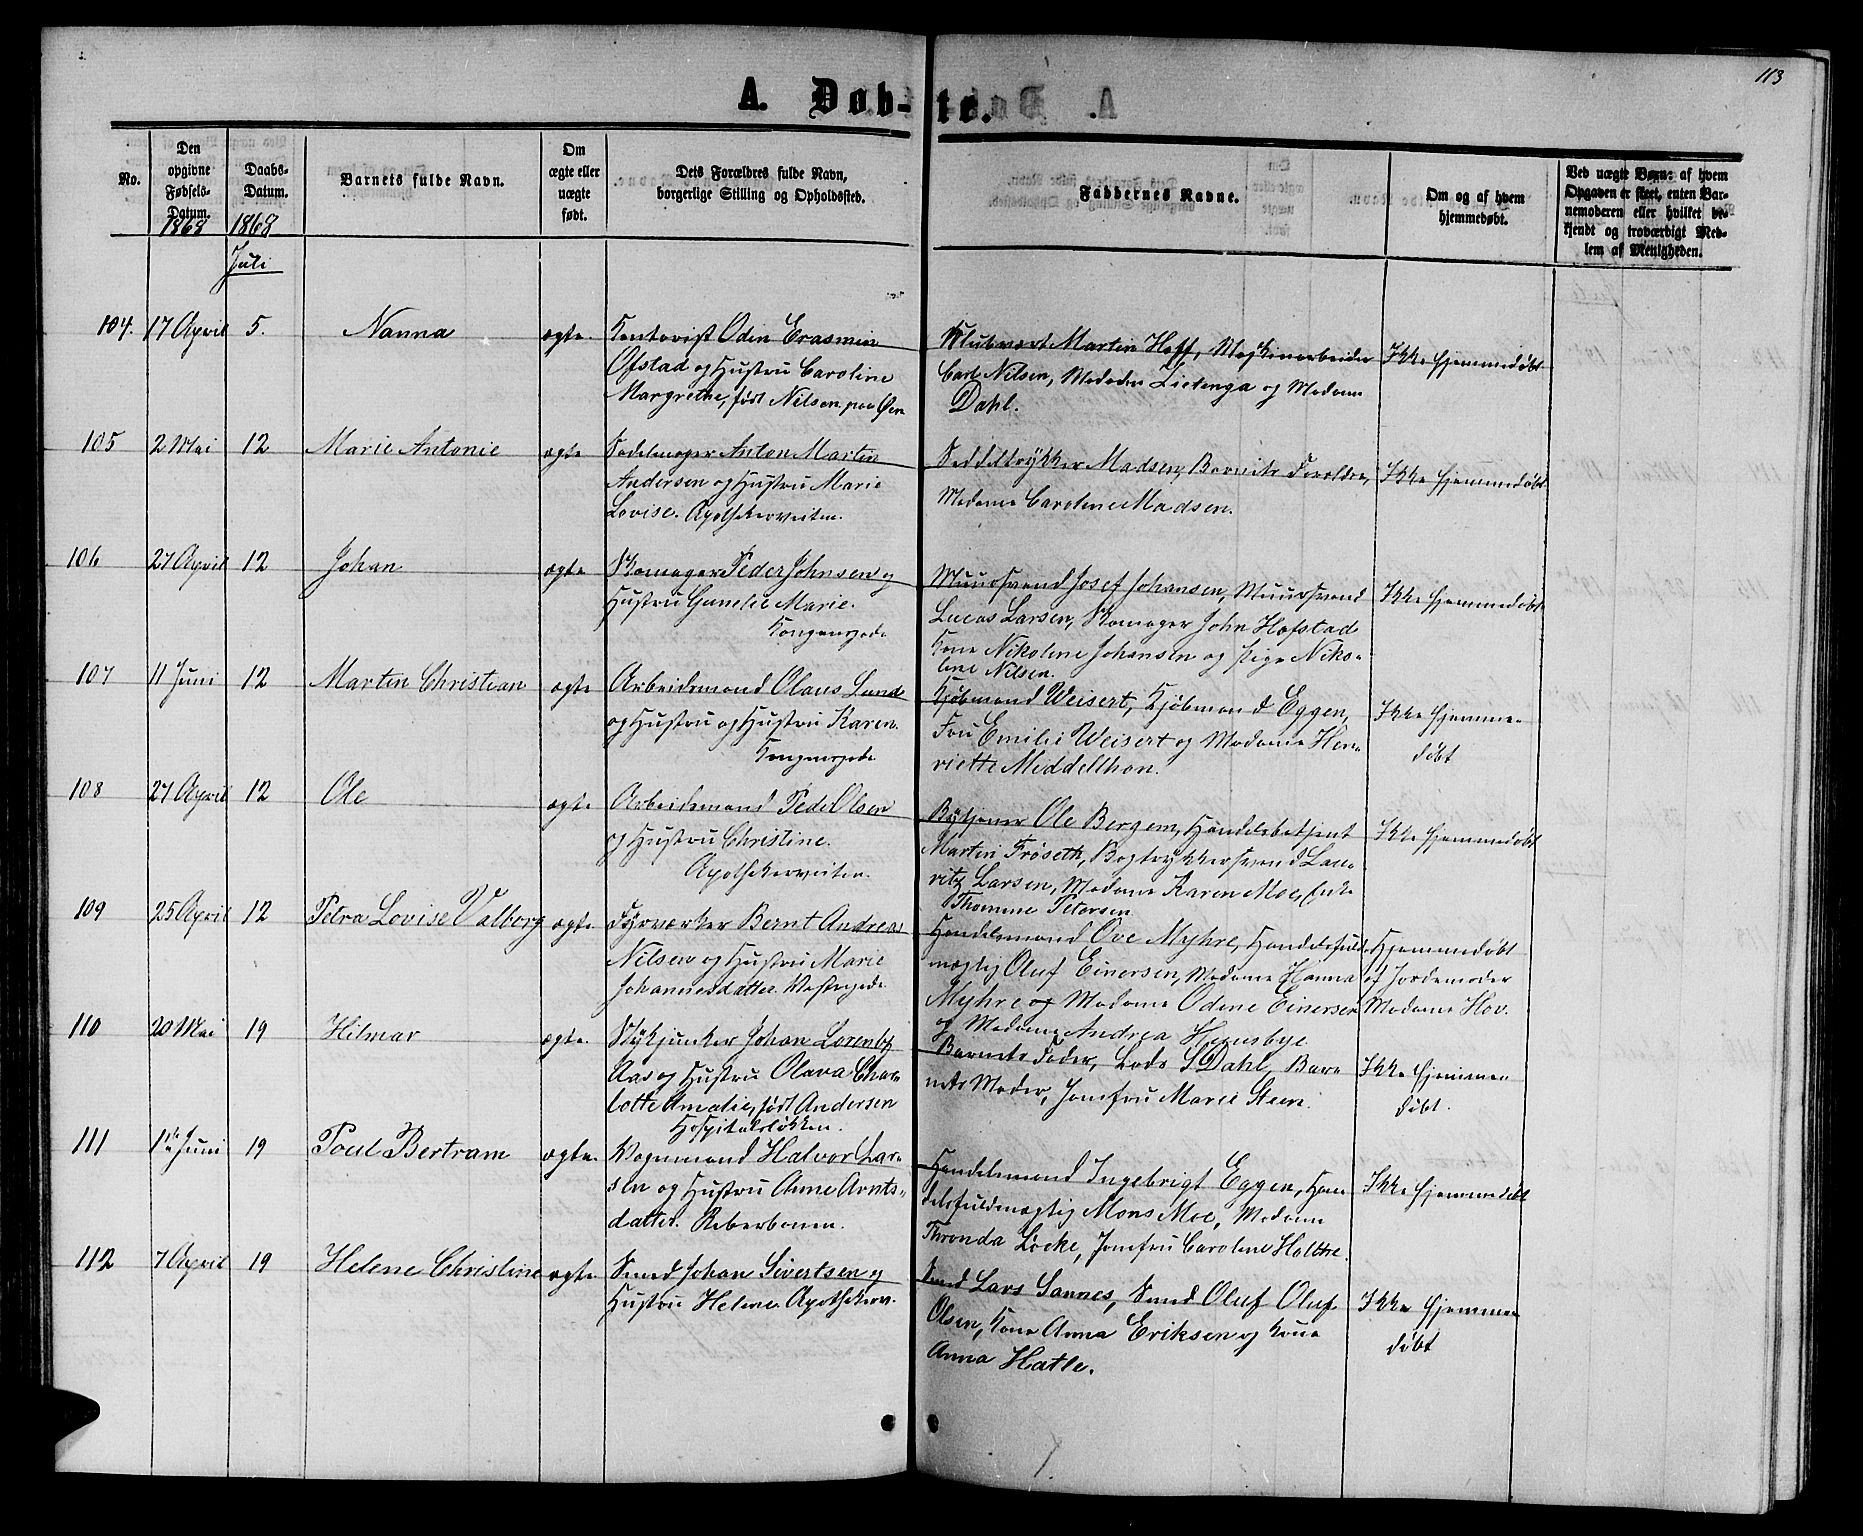 113
A. Døb-te.
No.
Den opgivne Fødsels-Datum.
Daabs-Datum.
Barnets fulde Navn.
Om ægte eller uægte født.
Dets Forældres fulde Navn, borgerlige Stilling og Opholdssted.
Faddernes Navne.
Om og af hvem hjemmedøbt.
Ved uægte Børn: af hvem Opgaven er skeet, enten Barnemoderen eller hvilket bekjendt og troværdigt Medlem af Menigheden.
1868 1868
Juli
104. 17 April 5. Nanna ægte.
Kontorist Odin Erasmin
Ofstad og Hustru Caroline
Margrethe, født Nilsen paa Øen
Klubvært Martin Hoff, Maskinarbeider
Carl Nilsen, Madame Lietenga og Madame
Dahl.
Ikke hjemmedøbt
105 2 Mai 12 Marie Antonie ægte
Sadelmager Anton Martin
Andersen og Hustru Marie
Lovise. Apothekerveiten.
Seddeltrykker Madsen, Barnets Forældre,
Madame Caroline Madsen.
Ikke hjemmedøbt
106 27 April 12 Johan ægte
Skomager Peder Johnsen og
Hustru Gunelie Marie.
Kongensgade
Muursvend Josef Johansen, Muursvend
Lucas Larsen, Skomager John Hofstad
Kone Nikoline Johansen og Pige Niko-
line Nilsen.
Ikke hjemmedøbt
107 11 Juni 12 Martin Christian ægte
Arbeidsmand Olaus Lund
og Hustru og Hustru Karen.
Kongensgade
Kjøbmand Weisert, Kjøbmand Eggen,
Fru Emilie Weisert og Madame Hen-
riette Middelthon.
Ikke hjemme-
døbt
108 27 April 12 Ole ægte
Arbeidsmand Peder Olsen
og Hustru Christine.
Apothekerveiten.
Bytjener Ole Bergem, Handelsbetjent
Martin Frøseth, Bogtrykkersvend Lau-
ritz Larsen, Madame Karen Moe, Enke
Thomine Petersen
Ikke hjemmedøbt
109 25 April 12 Petra Lovise Valborg ægte
Fyrværker Bernt Andreas
Nilsen og Hustru Marie
Johannesdatter. Vestregade
Handelsmand Ove Myhre, Handelsfuld-
mægtig Oluf Einersen, Madame Hanna
Myhre og Madame Odene Einersen
og Madame Andrea Hornsbye
Hjemmedøbt
af Jordemoder
Madame Hov.
110 20 Mai 19 Hilmar ægte.
Stykjunker Johan Lorentz
Aas og Hustru Olava Char-
lotte Amalie, født Andersen
Hospitalsløkken.
Barnets Fader, Lods S Dahl, Bar-
nets Moder, Jomfru Marie Steen.
Ikke hjemme-
døbt.
111 1ste Juni 19 Poul Bertram ægte.
Vognmand Halvor Lar-
sen og Hustru Anne Arnts-
datter. Reberbanen.
Handelsmand Ingebrigt Eggen, Han-
delsfuldmægtig Mons Moe, Madame
Thronda Løcke, Jomfru Caroline Holthe.
Ikke hjemmedøbt
112 7 April 19 Helene Christine ægte
Smed Johan Sivertsen og
Hustru Helene. Apothekerv.
Smed Lars Sannes, Smed Oluf Oluf
Olsen, Kone Anna Eriksen og Kone
Anna Hatle.
Ikke hjemme-
døbt